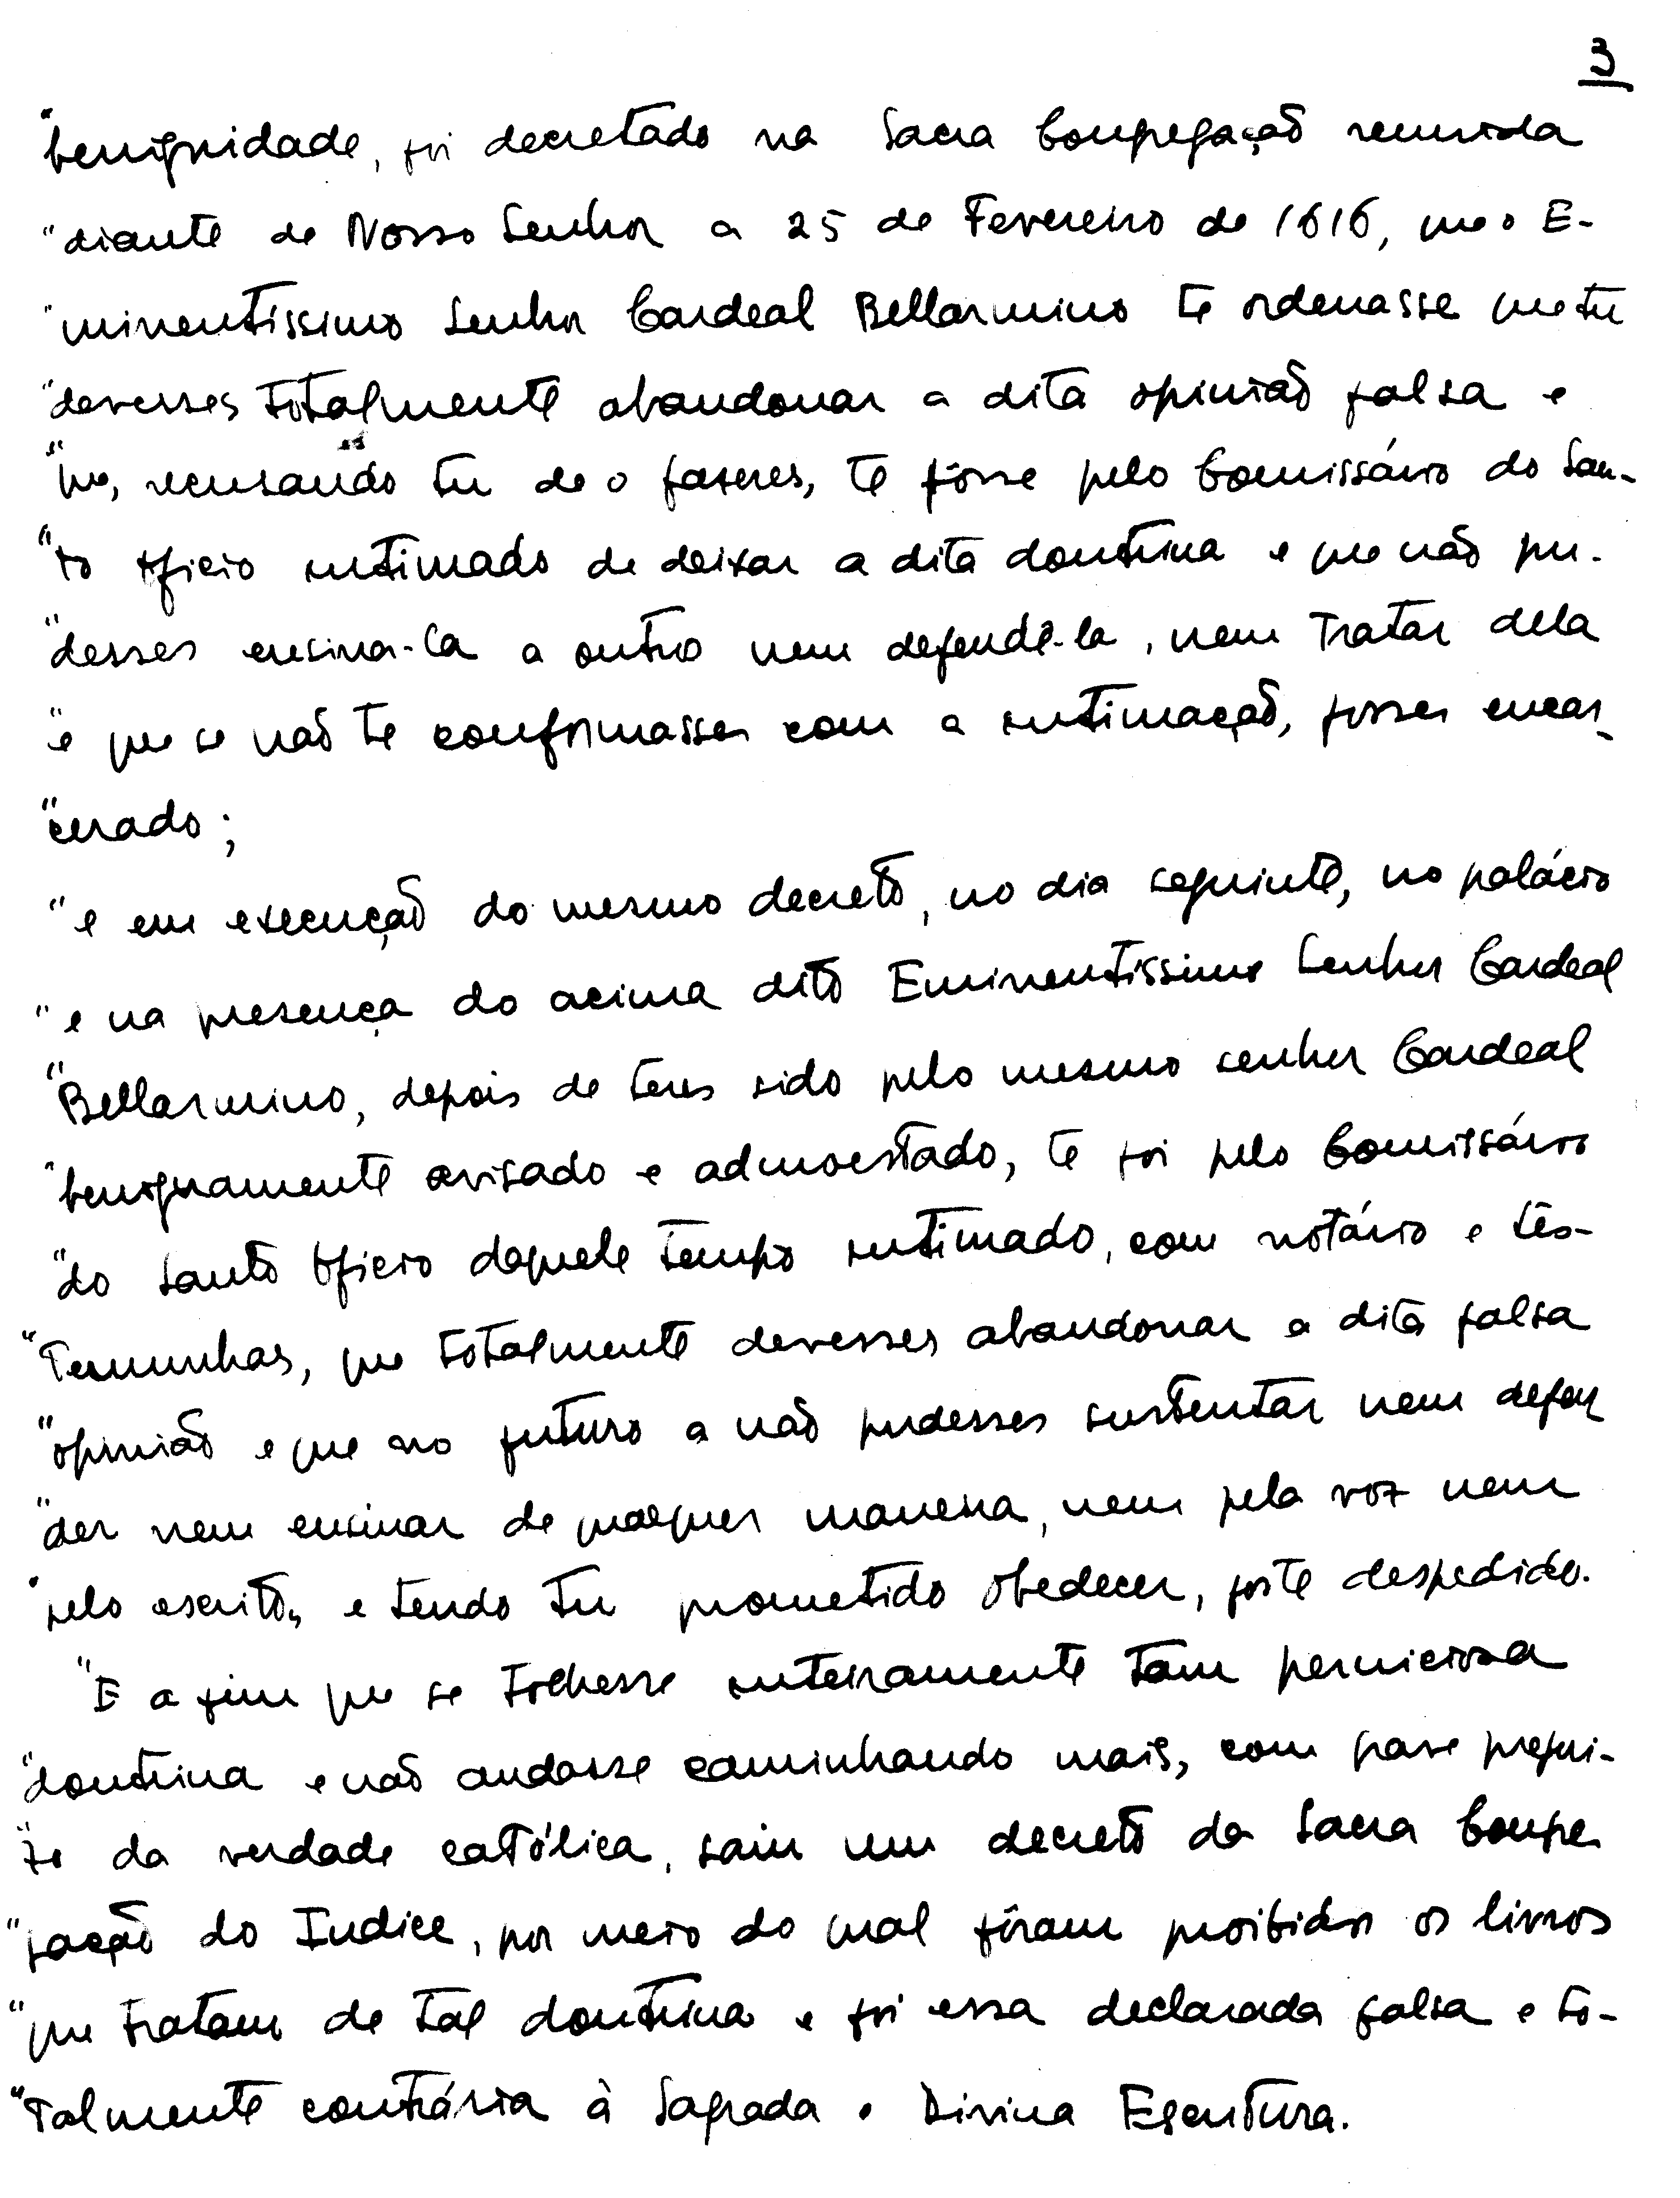 3
"benignidade, foi decretado na Sacra Congregação reunida
"diante de Nosso Senhor a 25 de Fevereiro de 1616, que o E-
"minentíssimo Senhor Cardeal Bellarmino te ordenasse que tu
"devesses totalmente abandonar a dita opinião falsa e
"que, recusando tu de o fazeres, te fôsse pelo Comissário do San-
"to Ofício intimado de deixar a dita doutrina e que não pu-
"desses ensina-la a outro nem defendê-la, nem tratar dela
"e que se não te conformasses com a intimação, fosses encar-
"cerado;
"e em execução do mesmo decreto, no dia seguinte, no palácio
"e na presença do acima dito Eminentíssimo Senhor Cardeal
"Bellarmino, depois de teres sido pelo mesmo senhor Cardeal
"benignamente avisado e admoestado, te foi pelo Comissário
"do Santo Ofício daquele tempo intimado, com notário e tes-
"temunhas, que totalmente devesses abandonar a dita falsa
"opinião e que no futuro a não pudesses sustentar nem defen
"der nem ensinar de qualquer maneira, nem pela voz nem
"pelo escrito, e tendo tu prometido obedecer, foste despedido.
"E a fim que se tolhesse inteiramente tam perniciosa
"doutrina e não andasse caminhando mais, com grave prejui-
"zo da verdade católica, saiu um decreto da Sacra Congre
"gação do Indice, por meio do qual fôram proibidos os livros
"que tratam de tal doutrina e foi essa declarada falsa e to-
"talmente contrária à Sagrada e Divina Escritura.